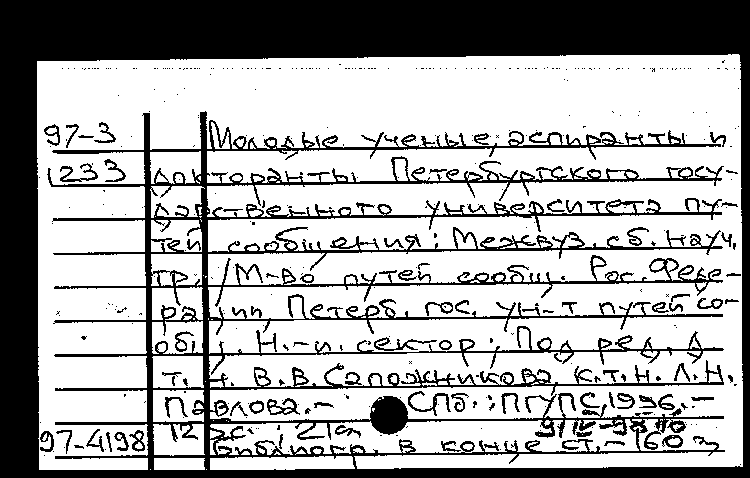 97-3 Молодые ученые, аспиранты и
1233 докторанты Петербургского госу-
дарственного университета пу-
тей сообщения: Межвуз. сб. науч.
тр. / М-во путей сообщ. Рос. Феде-
рации, Петерб. гос. ун-т путей со-
общ. Н.-и. сектор; Под ред. д.
т. н. В.В. Сапожникова, к.т.н. Л.Н.
Павлова. - СПб.: ПГУПС, 1996. -
12 с.; 21см
97-4198 Библиогр. в конце ст. - 160 э